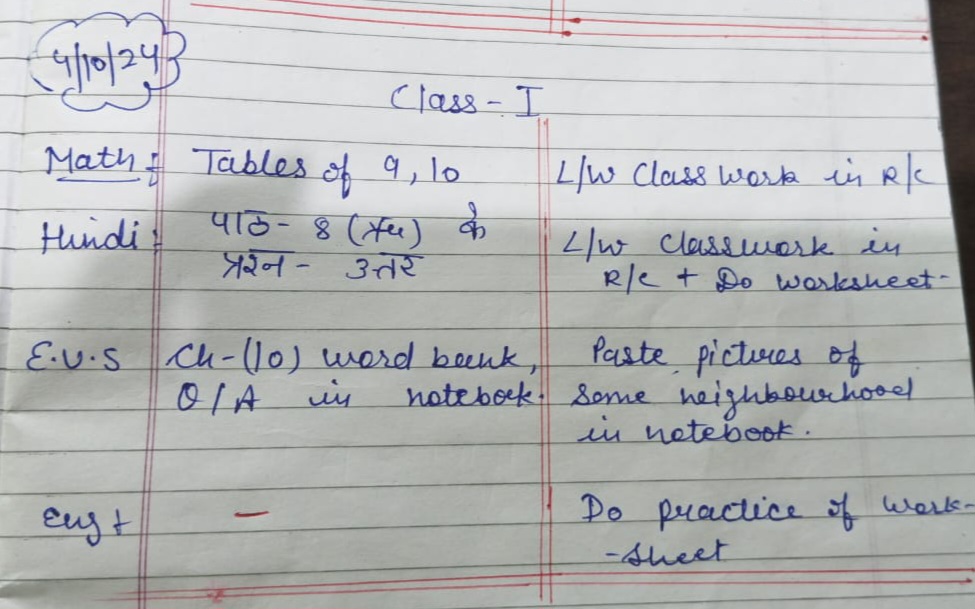 4/10/24
Class - I
Math : Tables of 9, 10 L/W Class work in R/c
Hindi : पाठ - 8 ( ) के L/W classwork in
प्रश्न - उत्तर R/c + Do worksheet -
E.V.S Ch-(10) word bank, Paste pictures of
Q/A in notebook. Some neighbourhood
in notebook.
Eng + — Do practice of work-
-sheet